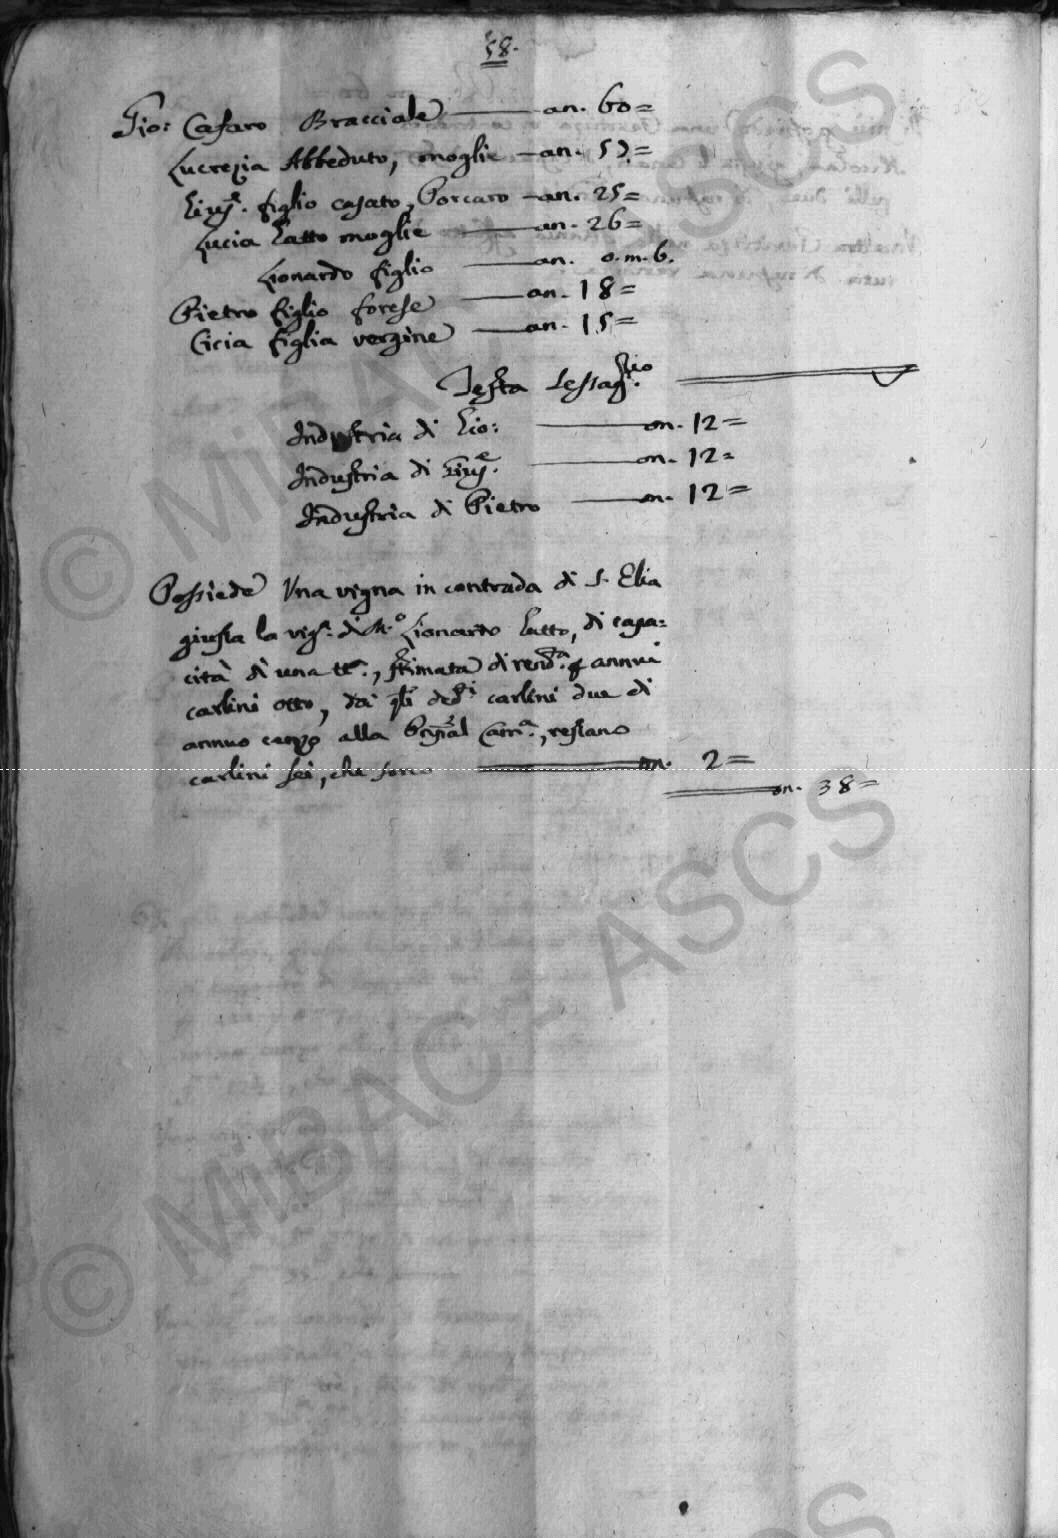 58.
Gio: Cafaro Bracciale an. 60=
Lucrezia Abbeduto, moglie an. 52=
Gius.e figlio casato, Porcaro an. 25=
Lucia Gatto moglie an. 26=
Lionardo figlio an. o. m. 6.
Pietro figlio forese an. 18=
Cicia figlia vergine an. 15=
Testa Sessag.rio
Industria di Gio: on. 12=
Industria di Gius.e on. 12=
Industria di Pietro on. 12=
Possiede Una vigna in contrada di S. Elia
giusta la vig.a di M.o Lionardo Gatto, di capa=
cità di una tt.a, stimata di rend.a annui
carlini otto, dai qli ded.ti carlini due di
annuo censo alla Cam.a, restano
carlini sei, che sono on. 2=
on. 38=
© MiBAC - ASCS
© MiBAC - ASCS